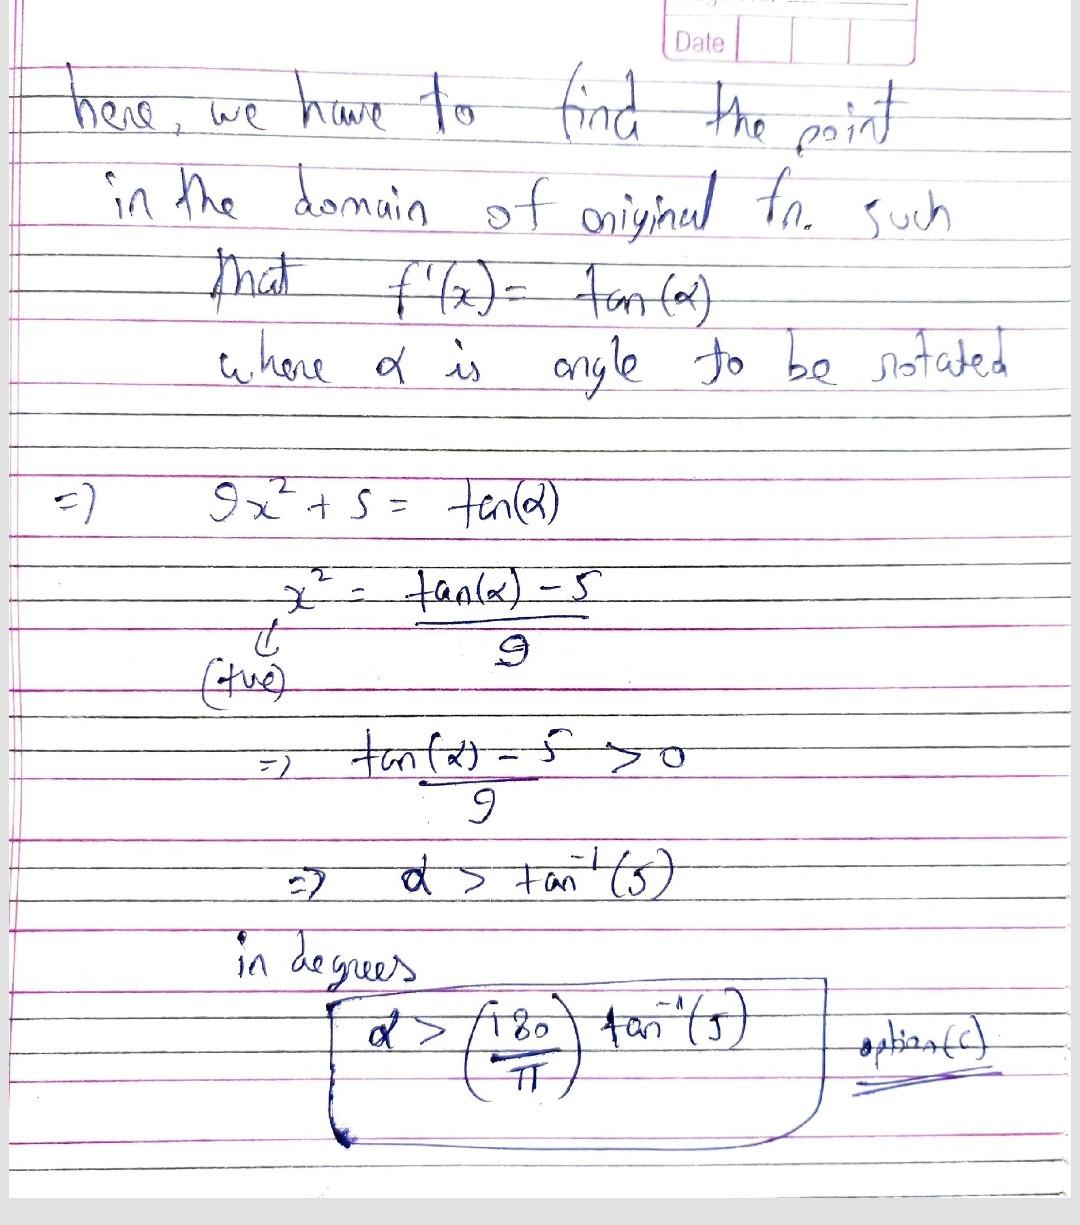 Date
here, we have to find the point
in the domain of original fn. such
that f'(x) = tan(α)
where α is angle to be rotated
=> 9x² + 5 = tan(α)
x² = tan(α) - 5 / 9
(+ve)
=> tan(α) - 5 / 9 > 0
=> α > tan⁻¹(5)
in degrees
α > (180/π) tan⁻¹(5) option (c)